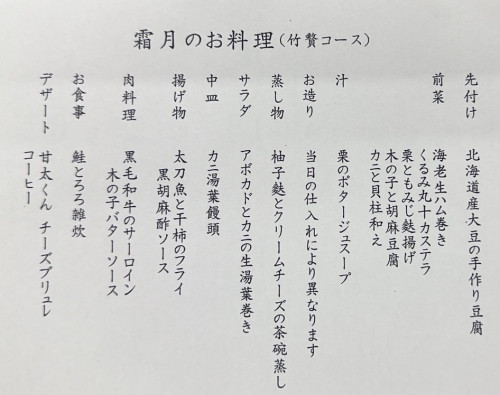 霜月のお料理（竹贅コース）
先付け　北海道産大豆の手作り豆腐
前菜　海老生ハム巻き
くるみ丸十カステラ
栗ともみじ麩揚げ
木の子と胡麻豆腐
カニと貝柱和え
汁　栗のポタージュスープ
お造り　当日の仕入れにより異なります
蒸し物　柚子麩とクリームチーズの茶碗蒸し
サラダ　アボカドとカニの生湯葉巻き
中皿　カニ湯葉饅頭
揚げ物　太刀魚と干柿のフライ
黒胡麻酢ソース
肉料理　黒毛和牛のサーロイン
木の子バターソース
お食事　鮭とろろ雑炊
デザート　甘太くん チーズブリュレ
コーヒー